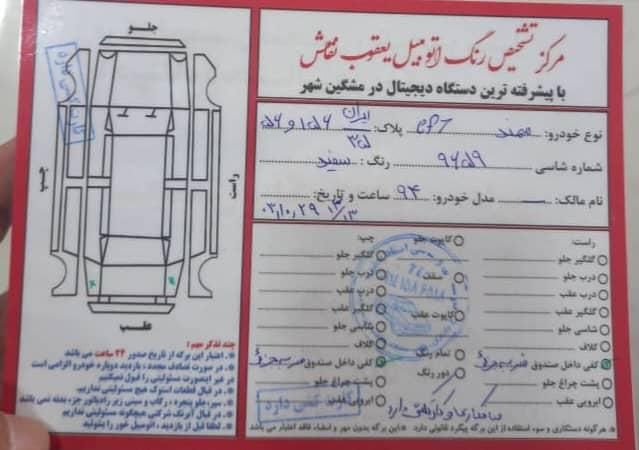 مرکز تشخیص رنگ اتومبیل یعقوب نقاش
با پیشرفته ترین دستگاه دیجیتال در مشگین شهر
نوع خودرو: سمند EF7 پلاک: ایران
شماره شاسی ۹۶۵۹ رنگ: سفید
نام مالک: مدل خودرو: ۹۴ ساعت و تاریخ:
۰۳/۱۰/۲۹
جلو
چپ
راست
عقب
راست:
گلگیر جلو
درب جلو
درب عقب
گلگیر عقب
شاسی جلو
گلاف
کفی داخل صندوق ضربه جزئی
پشت چراغ جلو
ابرویی عقب
کاپوت جلو
سقف
کاپوت عقب
تمام رنگ
دور رنگ
چپ:
گلگیر جلو
درب جلو
درب عقب
گلگیر عقب
شاسی جلو
گلاف
کفی داخل صندوق ضربه جزئی
پشت چراغ جلو
ابرویی عقب
کارت کفی دارد
چند تذکر مهم:
*. اعتبار این برگه از تاریخ صدور ۲۴ ساعت می باشد
*. در صورت تصادف مجدد، بازدید دوباره خودرو الزامی است
در غیر اینصورت مسئولیتی را قبول نمیکنیم
*. در قبال قطعات استوک هیچ مسئولیتی نداریم.
*. سپر، جلو پنجره، رکاب و سینی زیر رادیاتور جزء بدنه نمی باشد
*. در قبال آبرنگ شرکتی هیچگونه مسئولیتی نداریم.
*. لطفا قبل از بازدید، اتومبیل خود را بشوئید.
*هرگونه دستکاری و سوء استفاده از این برگه پیگرد قانونی دارد *این برگه بدون مهر و امضاء فاقد اعتبار می باشد